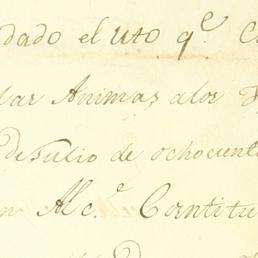 dado el Uto q.e
las Animas alos
de Julio de ochocient
Alc.e Constitu